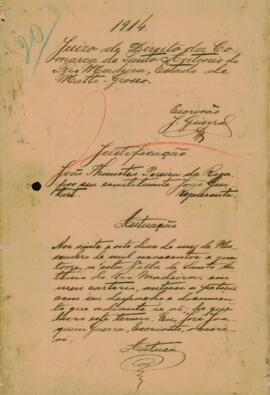 20
1914.
Juizo de Direito da Co-
marca de Santo Antonio do
Rio Madeira, Estado de
Matto-Grosso.
Escrivão
J. Guerra
Justificação
João Pereira do Rego,
por seu constituinte José
requerente.
Autuação
Aos vinte e oito dias do mez de
de mil novecentos e qua-
torze, n'esta de Santo An-
tonio do Rio Madeira, em
meu cartorio, autuei a petição
com seu despacho e documento
que adiante se vê; do que
lavro este termo. Eu, Joa-
quim Guerra, Escrivão,